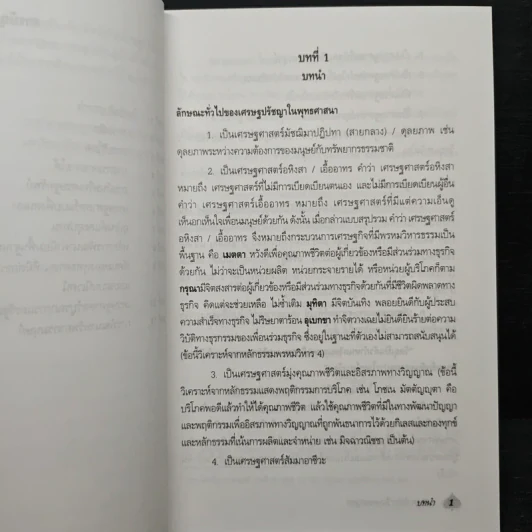 บทที่ 1
บทนำ
ลักษณะทั่วไปของเศรษฐปรัชญาในพุทธศาสนา
1. เป็นเศรษฐศาสตร์มัชฌิมาปฏิปทา (สายกลาง) / ดุลยภาพ เช่น
ดุลยภาพระหว่างความต้องการของมนุษย์กับทรัพยากรธรรมชาติ
2. เป็นเศรษฐศาสตร์อหิงสา / เอื้ออาทร คำว่า เศรษฐศาสตร์อหิงสา
หมายถึง เศรษฐศาสตร์ที่ไม่มีการเบียดเบียนตนเอง และไม่มีการเบียดเบียนผู้อื่น
คำว่า เศรษฐศาสตร์เอื้ออาทร หมายถึง เศรษฐศาสตร์ที่มีแต่ความเอ็นดู
เห็นอกเห็นใจเพื่อนมนุษย์ด้วยกัน ดังนั้น เมื่อกล่าวแบบสรุปรวม คำว่า เศรษฐศาสตร์
อหิงสา / เอื้ออาทร จึงหมายถึงกระบวนการเศรษฐกิจที่มีพรหมวิหารธรรมเป็น
พื้นฐาน คือ เมตตา หวังดีเพื่อคุณภาพชีวิตต่อผู้เกี่ยวข้องหรือมีส่วนร่วมทางธุรกิจ
ด้วยกัน ไม่ว่าจะเป็นหน่วยผลิต หน่วยกระจายรายได้ หรือหน่วยผู้บริโภคก็ตาม
กรุณามีจิตสงสารต่อผู้เกี่ยวข้องหรือมีส่วนร่วมทางธุรกิจด้วยกันที่มีชีวิตผิดพลาดทาง
ธุรกิจ คิดแต่จะช่วยเหลือ ไม่ซ้ำเติม มุทิตา มีจิตบันเทิง พลอยยินดีกับผู้ประสบ
ความสำเร็จทางธุรกิจ ไม่ริษยาตาร้อน อุเบกขา ทำจิตวางเฉยไม่ยินดียินร้ายต่อความ
วิบัติทางธุรกรรมของเพื่อนร่วมธุรกิจ ซึ่งอยู่ในฐานะที่ตัวเองไม่สามารถสนับสนุนได้
(ข้อนี้วิเคราะห์จากหลักธรรมพรหมวิหาร 4)
3. เป็นเศรษฐศาสตร์มุ่งคุณภาพชีวิตและอิสรภาพทางวิญญาณ (ข้อนี้
วิเคราะห์จากหลักธรรมแสดงพฤติกรรมการบริโภค เช่น โภชเน มัตตัญญุตา คือ
บริโภคพอดีแล้วทำให้ได้คุณภาพชีวิต แล้วใช้คุณภาพชีวิตที่มีในทางพัฒนาปัญญา
และพฤติกรรมเพื่ออิสรภาพทางวิญญาณที่ถูกพันธนาการไว้ด้วยกิเลสและกองทุกข์
และหลักธรรมที่เน้นการผลิตและจำหน่าย เช่น มิจฉาวณิชชา เป็นต้น)
4. เป็นเศรษฐศาสตร์สัมมาอาชีวะ
บทนำ 1